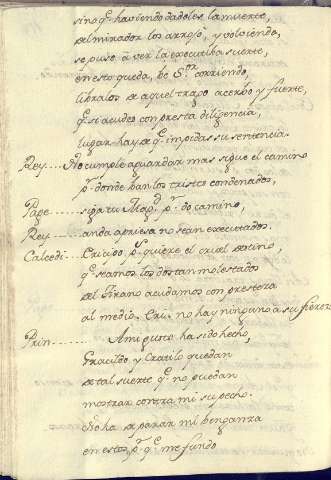 sino q̃ haviendo dadoles la muerte,
del mirador los arrojò, y volviendo,
se puso à ver la executiba suerte,
en esto queda, bè S.ᵒʳ corriendo,
libralos de aquel trago acerbo y fuerte,
q̃ si acudes con presta diligencia,
lugar hay de q̃ impidas su sentencia.
Rey ..... No cumple aguardar mas sigue el camino
p.ʳ donde ban los tristes condenados,
Page ..... siga tu Mag.ᵈ p.ʳ do camino,
Rey ..... anda apriesa no sean executados.
Calcedi .. Crisipo p.ˢ quiere el cruel destino,
q̃ estamos los dos tan molestados
del Tirano acudamos con presteza
al medio. Cri. no hay ninguno a su fiereza
Prin ..... A mi gusto ha sido hecho,
Gracildo, y Cratilo quedan
de tal suerte q̃ no puedan
mostrar contra mi su pecho.
No ha de parar mi benganza
en estos, p.ʳ q̃ me fundo